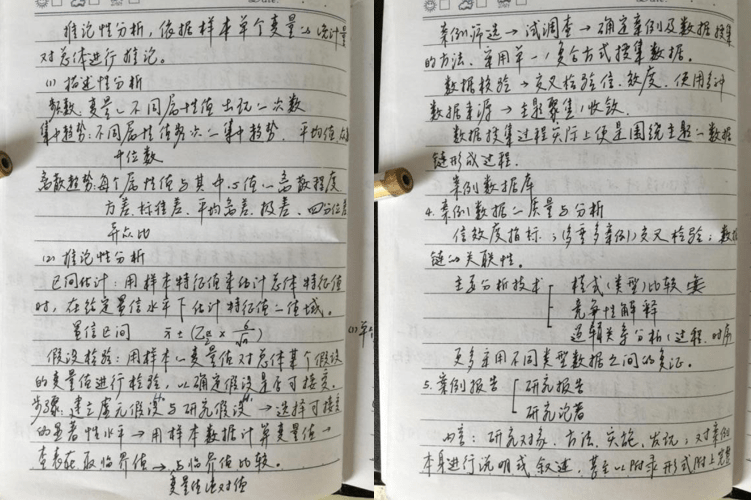 推论性分析，依据样本单个变量的统计量
对总体进行推论。
(1) 描述性分析
频数：变量的不同属性值出现的次数
集中趋势：不同属性值的集中趋势，平均值
中位数
离散趋势：每个属性值与其中心值的离散程度
方差、标准差、平均差、极差、四分位差
异众比
(2) 推论性分析
区间估计：用样本特征值来估计总体特征值
时，在给定置信水平下估计特征值的值域。
置信区间
假设检验：用样本的变量值对总体某个假设
的变量值进行检验，以确定假设是否可接受。
步骤：建立虚无假设与研究假设→选择可接受
的显著性水平→用样本数据计算变量值→
查表获取临界值→与临界值比较。
变量值绝对值
案例筛选→试调查→确定案例及数据搜集
的方法，采用单一/复合方式搜集数据。
数据校验→交叉检验信、效度，使用多种
数据来源→主题聚焦/收敛
数据搜集过程实际上便是围绕主题的数据
链形成过程.
案例数据库
4. 案例数据的质量与分析
信效度指标；(多重多案例)交叉检验；数据
链的关联性。
主要分析技术 模式(类型)比较
竞争性解释
逻辑关系分析(过程、时序
更多采用不同类型数据之间的复证。
5. 案例报告 研究报告
研究论著
内容：研究对象、方法、实施、发现，对案例
本身进行说明或叙述，甚至以附录形式附上完整